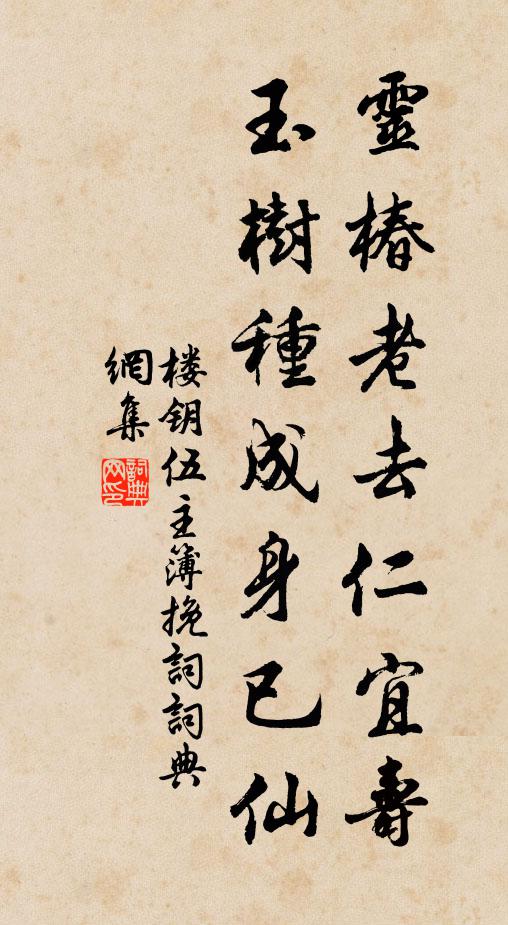 靈椿老去仁宜壽
玉樹種成身已仙
楼钥伍主簿挽詞詞典
網集
詞典网印